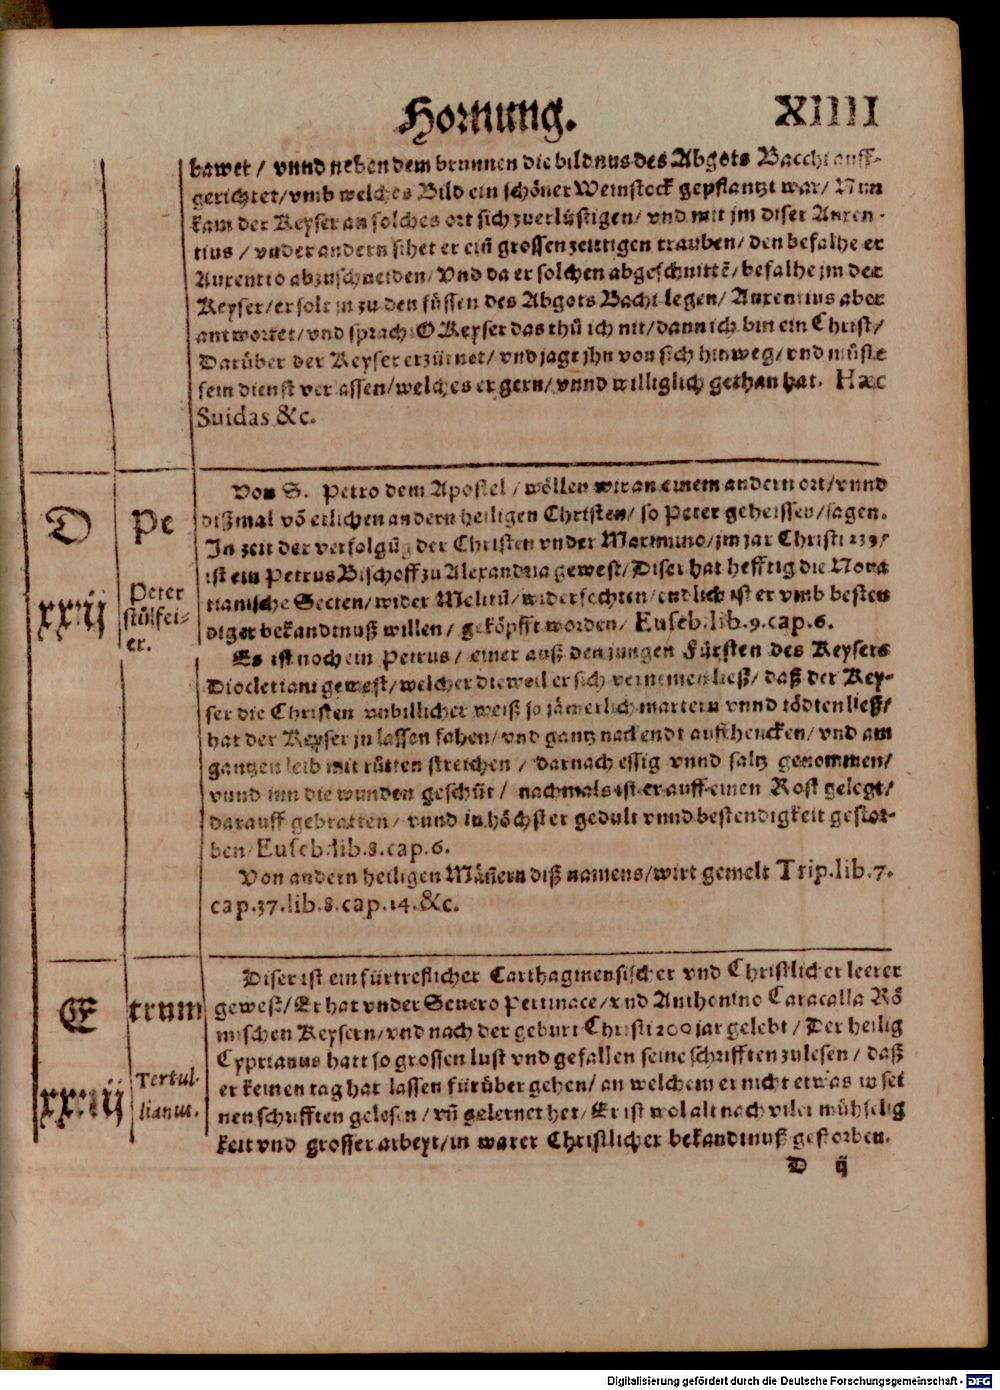 Hornung. XIIII
bawet / vnnd neben dem brunnen die bildnus des Abgots Bacchi auff-
gerichtet/vmb welches Bild ein schöner Weinstock gepflantzt war/ Nun
kam der Keyser an solches ort sich zuerlüstigen/ vnd mit jm diser Auxen-
tius / vnder andern sihet er eiñ grossen zeittigen trauben/ den befalhe er
Auxentio abzuschneiden/ Vnd da er solchen abgeschnittẽ/ befalhe jm der
Keyser/ er solt jn zu den füssen des Abgots Bachi legen/ Auxentius aber
antwortet/ vnd sprach/ O Keyser das thů ich nit/ dann ich bin ein Christ/
Darüber der Keyser erzürnet/ vnd jagt jhn von sich hinweg/ vnd můste
sein dienst verlassen/ welches er gern/ vnnd williglich gethan hat. Hæc
Suidas &c.
D Pe
xxij Peter stůlfei=
er.
Von S. Petro dem Apostel / wöllen wir an einem andern ort/ vnnd
dißmal võ etlichen andern heiligen Christen/ so Peter geheissen/ sagen.
In zeit der verfolgũg der Christen vnder Maximino/ jm jar Christi
ist ein Petrus Bischoff zu Alexandria gewest/ Diser hat hefftig die Nova
tianische Secten/ wider Melitiũ/ widerfechten/ endlich ist er vmb besten
diger bekandtnuß willen/ geköpfft worden/ Euseb.lib.9.cap.6.
Es ist noch ein Petrus / einer auß den jungen Fürsten des Keysers
Diocletiani gewest/ welcher dieweil er sich vernemen ließ/ daß der Key-
ser die Christen vnbillicher weiß so jämerlich martern vnnd tödten ließ/
hat der Keyser jn lassen fahen/ vnd gantz nackendt auffhencken/ vnd am
gantzen leib mit růtten streichen / darnach essig vnnd saltz genommen/
vnnd inn die wunden geschüt / nachmals ist er auff einen Rost gelegt/
darauff gebratten/ vnnd in höchster gedult vnnd bestendigkeit gestor-
ben/ Euseb.lib.8.cap.6.
Von andern heiligen Mäñern diß namens/ wirt gemelt Trip.lib.7.
cap.37.lib.8.cap.14.&c.
E trum
xxiij Tertul-
lianus.
Diser ist ein fürtreflicher Carthaginensischer vnd Christlicher leerer
gewest/ Er hat vnder Seuero Pertinace/ vnd Anthonino Caracalla Rö
mischen Keysern/ vnd nach der geburt Christi 200 jar gelebt / Der heilig
Cyprianus hatt so grossen lust vnd gefallen seine schrifften zulesen / daß
er keinen tag hat lassen fürüber gehen/ an welchem er nicht etwas in sei
nen schrifften gelesen / vñ gelernet het/ Er ist wol alt nach viler mühselig
keit vnd grosser arbeyt/ in warer Christlicher bekandtnuß gestorben.
D ij
Digitalisierung gefördert durch die Deutsche Forschungsgemeinschaft - DFG